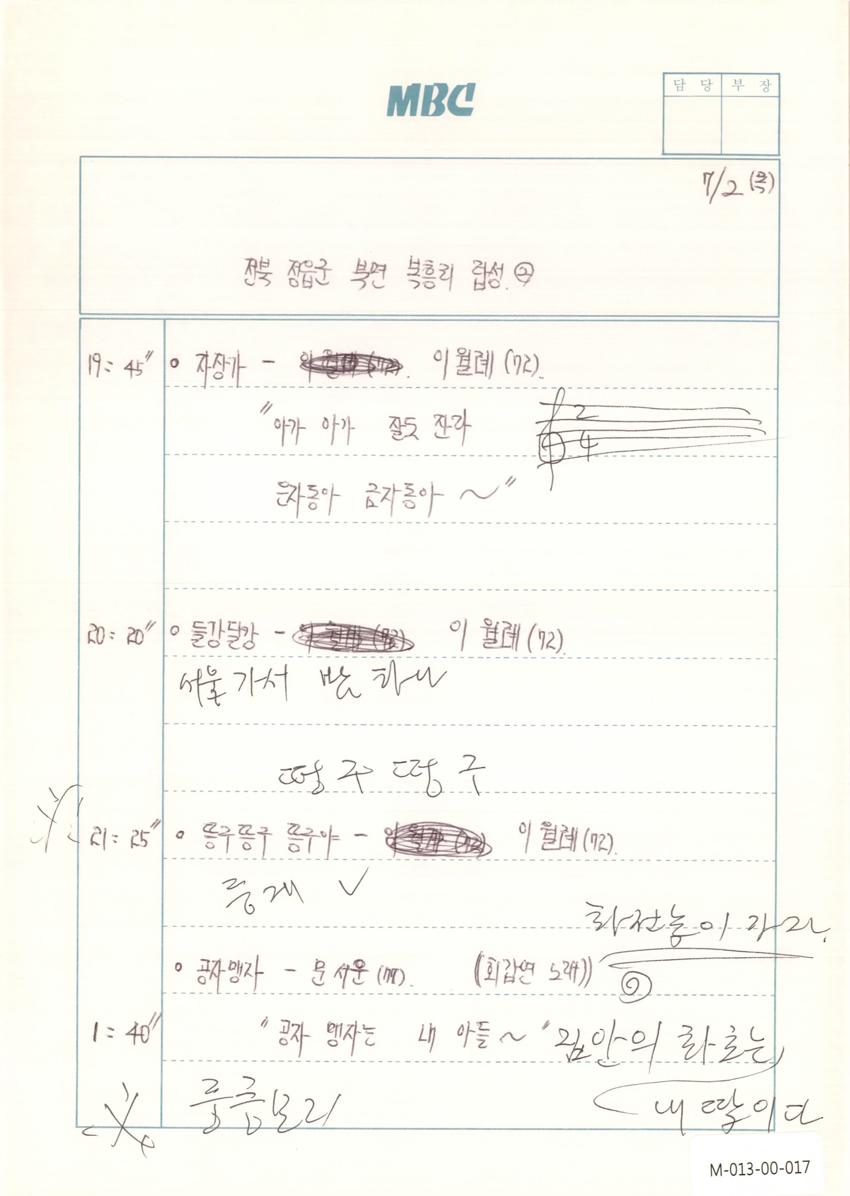 MBC
담 당 부 장
7/2 (목)
전북 정읍군 북면 복흥리 탑성. ②
19: 45" ○ 자장가 - 이월례 (72).
"아가 아가 잘도 잔다
2
4
은자동아 금자동아 ~"
20: 20" ○ 들강달강 - 이 월례 (72).
서울 가서 밤 하나
떵구 떵구
21: 25" ○ 뜽구뜽구 뜽구야 - 이 월례 (72).
등게 ✓
화전놀이 가자.
○ 공자맹자 - 문서운 (77). (회갑연 노래)
②
1: 40" "공자 맹자는 내 아들 ~"
집안의 화초는
중금모리
내 딸이다
M-013-00-017